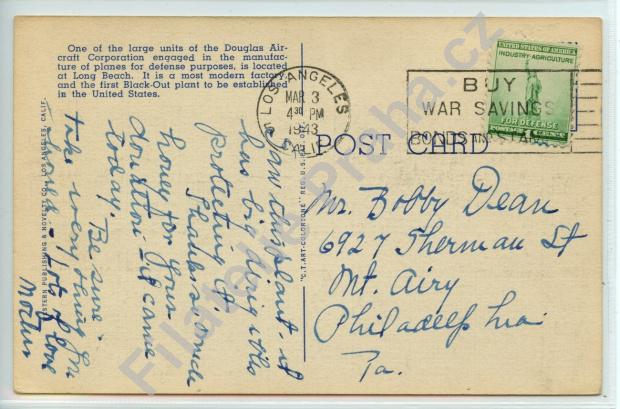 One of the large units of the Douglas Air-
craft Corporation engaged in the manufac-
ture of planes for defense purposes, is located
at Long Beach. It is a most modern factory
and the first Black-Out plant to be established
in the United States.
LOS ANGELES
MAR 3
4 30 PM
1943
CALIF.
BUY
WAR SAVINGS
BONDS
UNITED STATES OF AMERICA
INDUSTRY-AGRICULTURE
FOR DEFENSE
POST CARD
"C.T. ART-COLORTONE" REG. U.S.
WESTERN PUBLISHING & NOVELTY CO., LOS ANGELES, CALIF.
plant - it
has big
protecting it.
Thanks so much
honey for your
donation - it came
today.
Be sure
take every thing
Lots of love
Mother
Mr. Bobby Dean
6927 Sherman St
Mt. Airy
Philadelphia
Pa.
Filatelie-Praha.cz